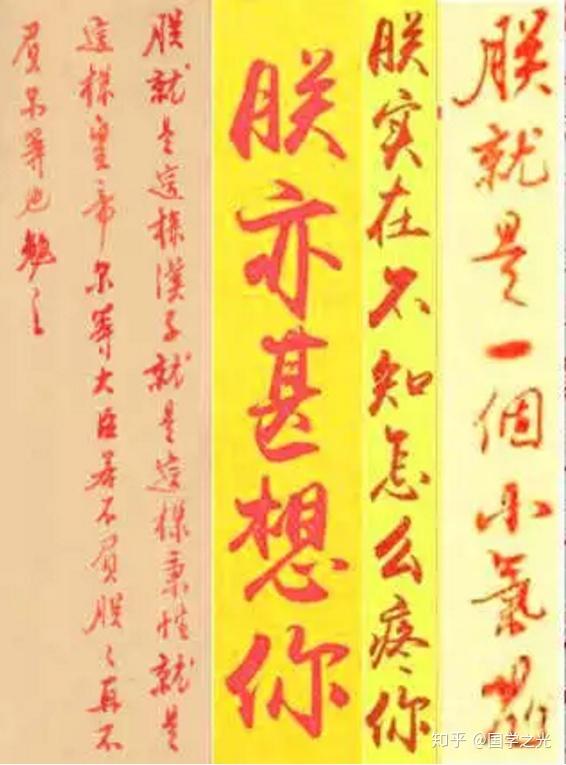 朕就是一個小氣
朕实在不知怎么疼你
朕亦甚想你
朕就是這樣漢子就是這樣秉性就是
這樣皇帝尔等大臣若不負朕〻再不
負尔等也勉之
知乎 @国学之光